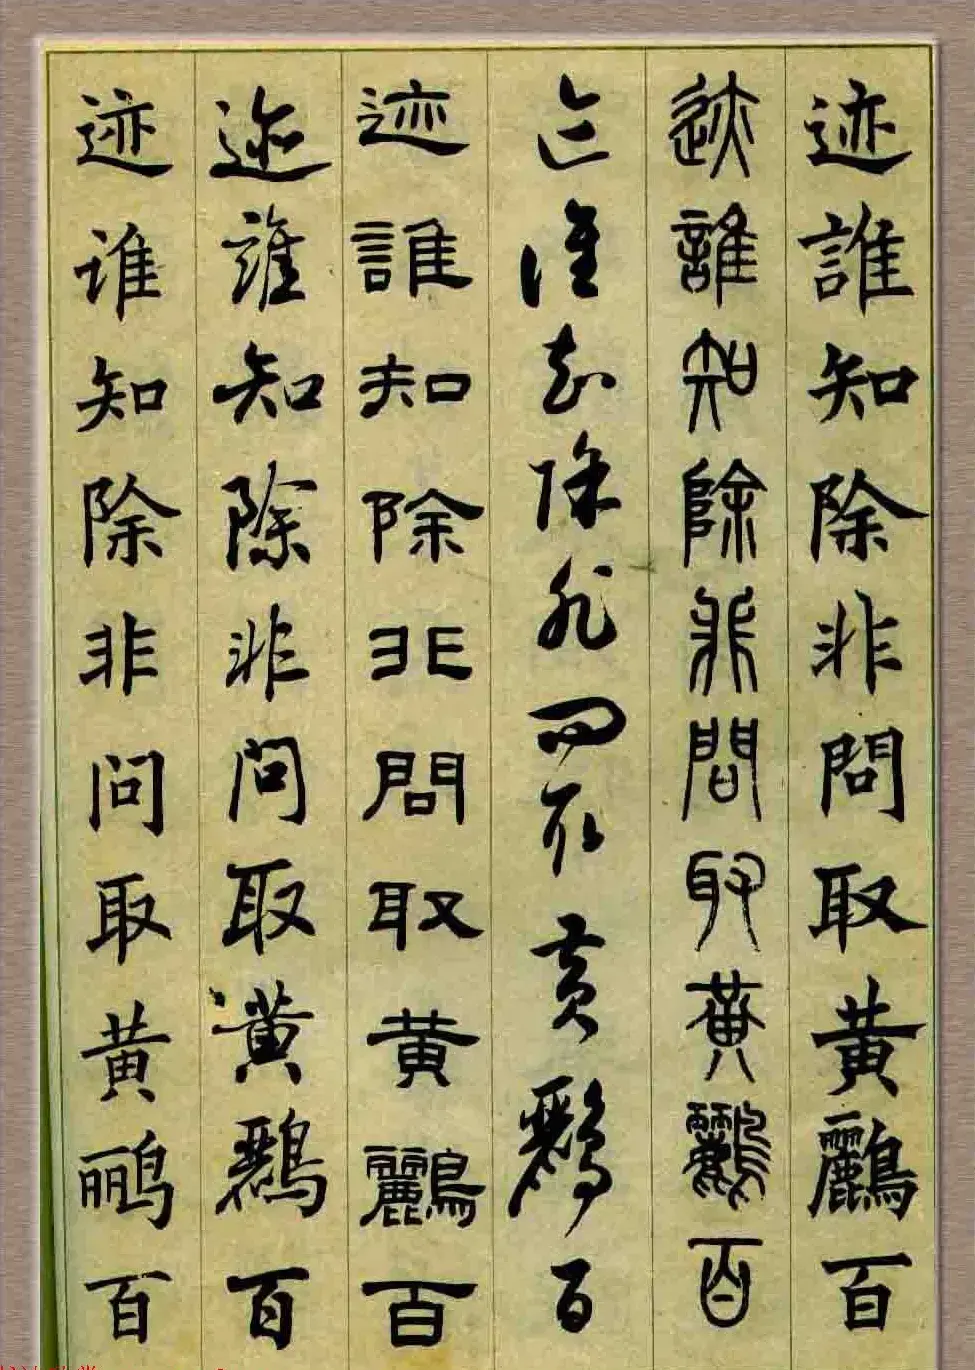 迹誰知除非問取黃鸝百
迹誰知除非問取黃鸝百
迹誰知除非問取黃鸝百
迹誰知除非問取黃鸝百
迹誰知除非问取黃鸝百
迹谁知除非问取黄鹂百